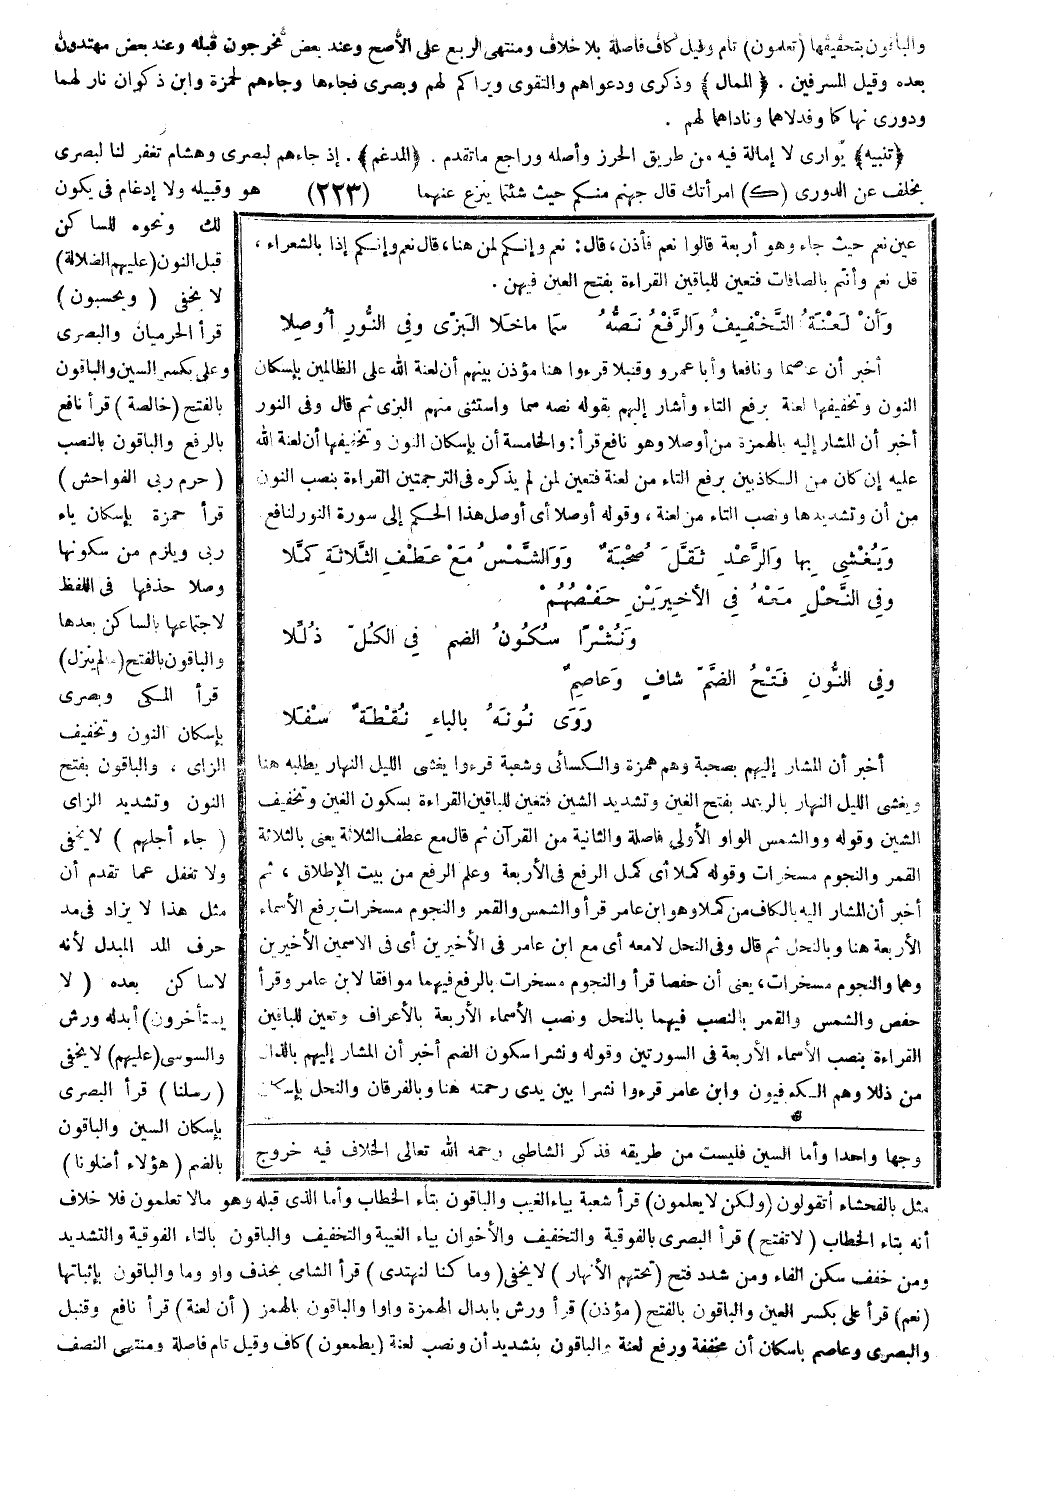 والباقون بتحقيقها (تعلمون) تام وقيل كاف فاصلة بلا خلاف ومنتهى الربع على الأصح وعند بعض تُخرجون قبله وعند بعض مهتدون
بعده وقيل المسرفين . ﴿ الممال ﴾ وذكرى ودعواهم والتقوى ويراكم لهم وبصرى فجاءها وجاءهم لحمزة وابن ذكوان نار لهما
ودورى نهاكما وفدلاهما وناداهما لهم .
﴿تنبيه﴾ يُوارى لا إمالة فيه من طريق الحرز وأصله وراجع ماتقدم . ﴿المدغم﴾ . إذ جاءهم لبصرى وهشام تغفر لنا لبصرى
بخلف عن الدورى (ك) امرأتك قال جهنم منكم حيث شئتما ينزع عنهما (٢٢٣) هو وقبيله ولا إدغام فى يكون
لك ونحوه للساكن
قبل النون (عليهم الضلالة)
لا يخفى ( ويحسبون )
قرأ الحرميان والبصرى
وعلى بكسر السين والباقون
بالفتح (خالصة) قرأ نافع
بالرفع والباقون بالنصب
( حرم ربى الفواحش )
قرأ حمزة بإسكان ياء
ربى ويلزم من سكونها
وصلا حذفها فى اللفظ
لاجتماعها بالساكن بعدها
والباقون بالفتح (مالم ينزل)
قرأ المكى وبصرى
بإسكان النون وتخفيف
الزاى ، والباقون بفتح
النون وتشديد الزاى
( جاء أجلهم ) لا يخفى
ولا تغفل عما تقدم أن
مثل هذا لا يزاد فى مد
حرف المد المبدل لأنه
لاساكن بعده ( لا
يستأخرون) أبدله ورش
والسوسى (عليهم) لا يخفى
( رسلنا ) قرأ البصرى
بإسكان السين والباقون
بالضم ( هؤلاء أضلونا )
عين نعم حيث جاء وهو أربعة قالوا نعم فأذن، قال: نعم وإنكم لمن هنا، قال نعم وإنكم إذا بالشعراء ،
قل نعم وأنتم بالصافات فتعين للباقين القراءة بفتح العين فيهن .
وَأَنْ لَعْنَةُ التَّخْفِيفُ وَالرَّفْعُ نَصُّهُ سَمَا ماخَلا البَزِّى وفِي النُّورِ أُوصِلا
أخبر أن عاصما ونافعا وأبا عمرو وقنبلا قرءوا هنا مؤذن بينهم أن لعنة الله على الظالمين بإسكان
النون وتخفيفها لعنة برفع التاء وأشار إليهم بقوله نصه سما واستثنى منهم البزى ثم قال وفى النور
أخبر أن المشار إليه بالهمزة من أوصلا وهو نافع قرأ: والخامسة أن بإسكان النون وتخفيفها أن لعنة الله
عليه إن كان من الكاذبين برفع التاء من لعنة فتعين لمن لم يذكره فى الترجمتين القراءة بنصب النون
من أن وتشديدها ونصب التاء من لعنة ، وقوله أوصلا أى أوصل هذا الحكم إلى سورة النور لنافع
وَيُغْشِى بِها والرَّعْدِ ثَقَّلَ صُحْبَةٌ وَوَالشَّمْسُ مَعْ عَطْفِ الثَّلاثَةِ كَمَّلا
وفِي النَّحْلِ مَعْهُ فِي الأخِيرَيْنِ حَفْصُهُمْ
وَنُشْرًا سُكُونُ الضم فِي الكُلّ ذُلِّلا
وفِي النُّونِ فَتْحُ الضَّمّ شافٍ وَعاصِمٌ
رَوَى نُونَهُ بالباءِ نُقْطَةٌ سْفَلا
أخبر أن المشار إليهم بصحبة وهم حمزة والكسائى وشعبة قرءوا يغشى الليل النهار يطلبه هنا
ويغشى الليل النهار بالرعد بفتح الغين وتشديد الشين فتعين للباقين القراءة بسكون الغين وتخفيف
الشين وقوله ووالشمس الواو الأولى فاصلة والثانية من القرآن ثم قال مع عطف الثلاثة يعنى بالثلاثة
القمر والنجوم مسخرات وقوله كملا أى كمل الرفع فى الأربعة وعلم الرفع من بيت الإطلاق ، ثم
أخبر أن المشار اليه بالكاف من كملا وهو ابن عامر قرأ والشمس والقمر والنجوم مسخرات برفع الأسماء
الأربعة هنا وبالنحل ثم قال وفى النحل لامعه أى مع ابن عامر فى الأخيرين أى فى الاسمين الأخيرين
وهما والنجوم مسخرات، يعنى أن حفصا قرأ والنجوم مسخرات بالرفع فيهما موافقا لابن عامر وقرأ
حفص والشمس والقمر بالنصب فيهما بالنحل ونصب الأسماء الأربعة بالأعراف وتعين للباقين
القراءة بنصب الأسماء الأربعة فى السورتين وقوله ونشرا سكون الضم أخبر أن المشار إليهم بالذال
من ذللا وهم الكوفيون وابن عامر قرءوا نشرا بين يدى رحمته هنا وبالفرقان والنحل بإسكان
وجها واحدا وأما السين فليست من طريقه فذكر الشاطبى رحمه الله تعالى الخلاف فيه خروج
مثل بالفحشاء أتقولون (ولكن لا يعلمون) قرأ شعبة بياء الغيب والباقون بتاء الخطاب وأما الذى قبله وهو مالا تعلمون فلا خلاف
أنه بتاء الخطاب ( لاتفتح ) قرأ البصرى بالفوقية والتخفيف والأخوان بياء الغيبة والتخفيف والباقون بالتاء الفوقية والتشديد
ومن خفف سكن الفاء ومن شدد فتح (تحتهم الأنهار ) لا يخفى ( وما كنا لنهتدى ) قرأ الشامى بحذف واو وما والباقون بإثباتها
(نعم) قرأ على بكسر العين والباقون بالفتح ( مؤذن) قرأ ورش بابدال الهمزة واوا والباقون بالهمز ( أن لعنة ) قرأ نافع وقنبل
والبصرى وعاصم باسكان أن مخففة ورفع لعنة والباقون بتشديد أن ونصب لعنة (يطمعون) كاف وقيل تام فاصلة ومنتهى النصف